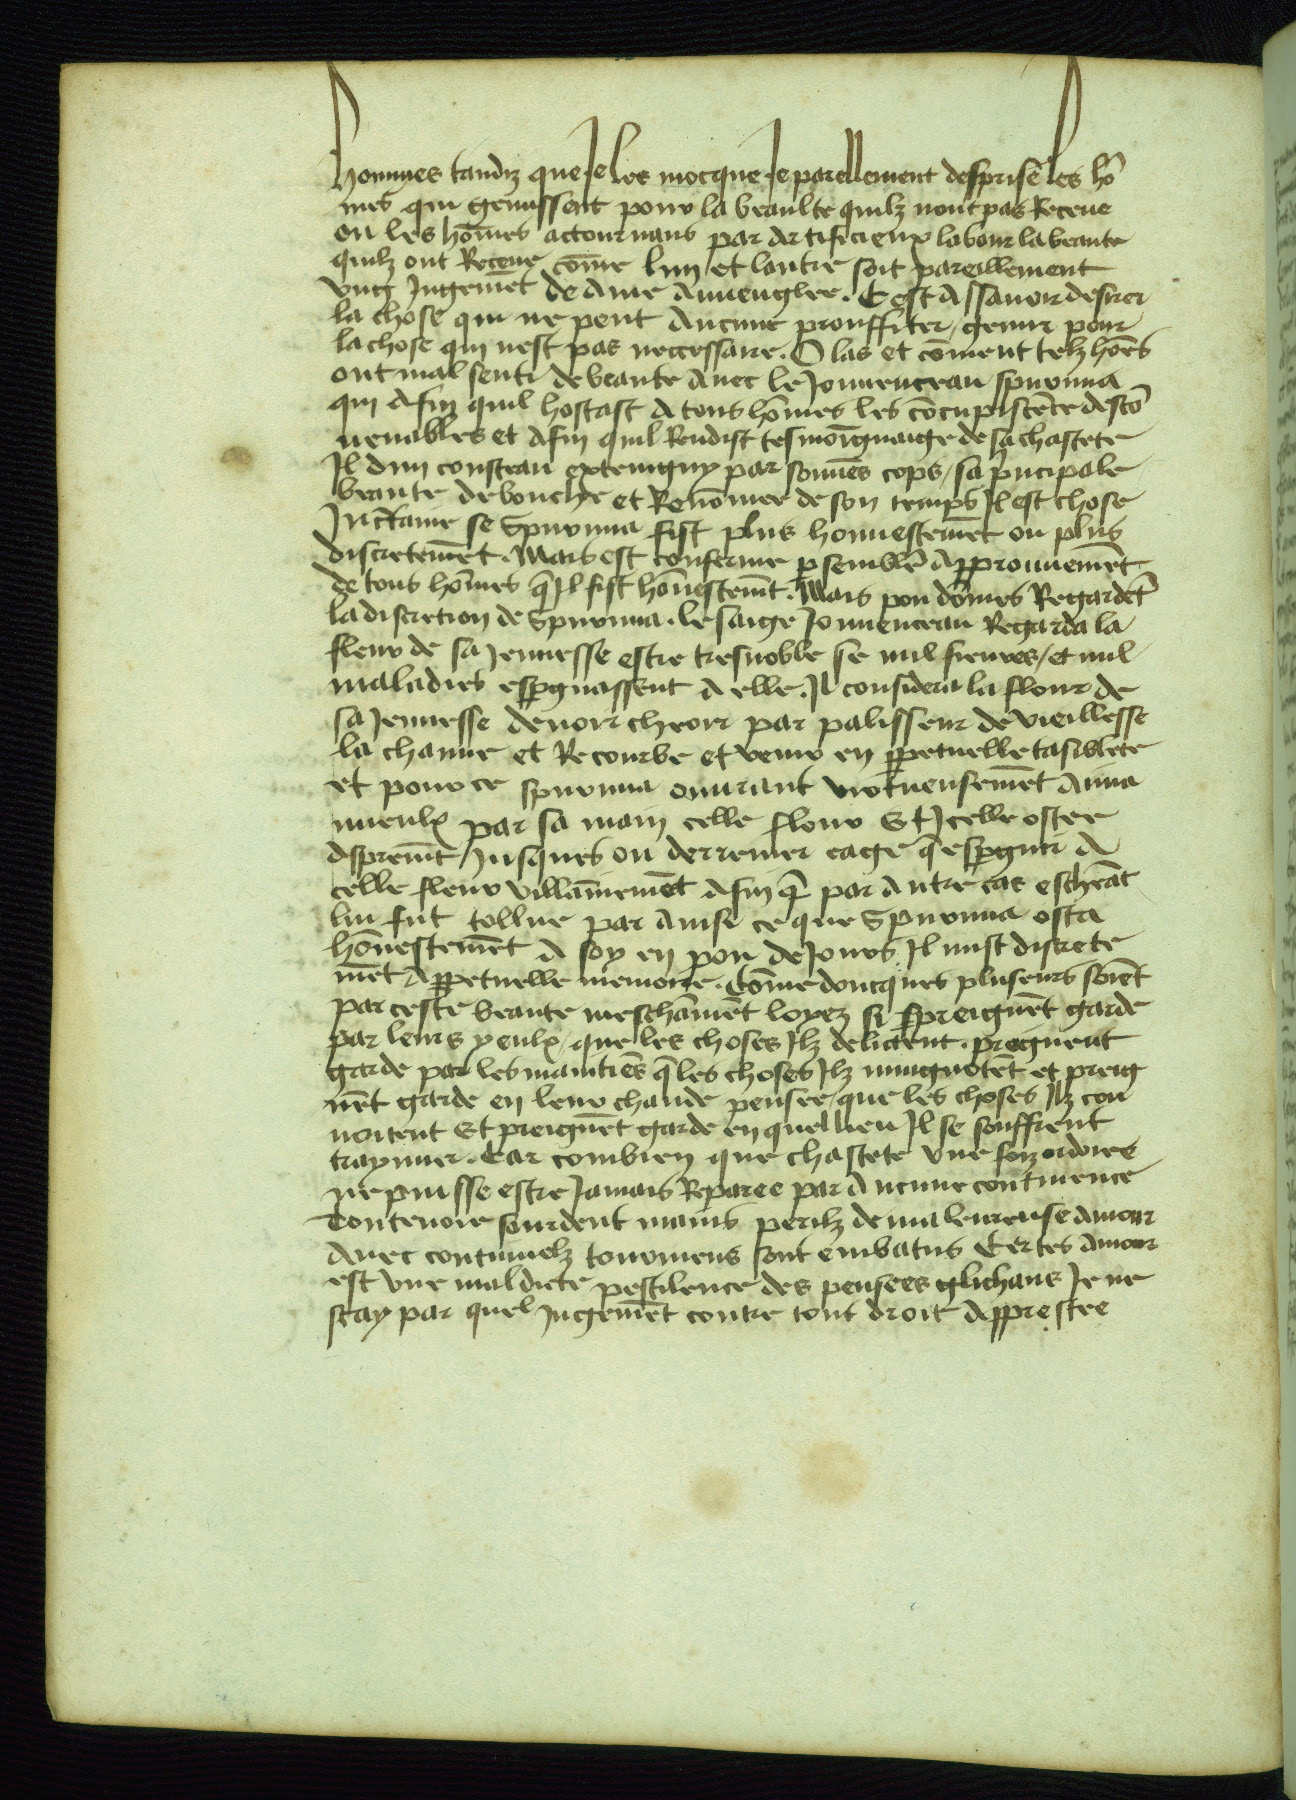 hommes tandiz que Je les mocque Je pareillement desprise les hō
mes qui gemissent pour la beaulte quilz nont pas Receue
ou les hōmes actournans par artificieux labour la beaute
quilz ont Receue cōme lun et lautre soit pareillement
vng Jugemēt de ame Aueuglee. Cest Assauoir desirer
la chose qui ne peut Aucune prouffiter, gemir pour
la chose qui nest pas neccessaire. O las et cōment telz hōēs
ont mal senti de beaute Auec le Jouuenceau spurinna
qui Afin quil hostast A tous hōmes les cōcupiscēce descō
uenables et Afin quil Rendist tesmoignaige de sa chastete
Il dun cousteau extermina par souuēs cops, sa pncipale
beaute de bouche et Renōmee de son temps Il est chose
Incertaine se Spurinna fist plus honnestemēt ou plus
discretemēt. Mais est conferme p semblē Approuuemēt
de tous hōmes q̄ Il fist hōnestemt. Mais pou dōmes Regardēt
la discretion de Spurinna. le saige Jouuenceau Regarda la
fleur de sa Jeunesse estre tresnoble se nul fieures, et nul
maladies espgnassent A elle. Il considera la fleur de
sa Jeunesse deuoir cheoir par palisseur de vieillesse
la chanue et Recourbe et venir en ppetuelle tasiblete
et pour ce spurinna ouurant vertueusemēt Aima
mieulx par sa main celle fleur Et Icelle ostee
Aspremt Jusques ou derrenier eage q̄ espgnir A
celle fleur villainemēt Afin q̄ par Autre cas eschēāt
lui fut tollue par ainsi ce que Spurinna osta
hōnestemēt A soy en pou de Jours Il mist discrete
mēt A ppetuelle memoire. Cōme doncques pluseurs soiēt
par ceste beaute meschāmēt loyez si preignēt garde
par leurs yeulx, que les choses Ilz delictent. preignent
garde par les maintiēs q̄ les choses Ilz mugnotēt et preig
nēt garde en leur chaude pensee, que les choses Ilz con
uoitent Et preignēt garde en quel lieu Il se souffrent
traynner. Car combien que chastete vne foiz ordoiee
ne puisse estre Jamais Reparee par Aucune continence
Touteuoie sourdent mains perilz de maleureuse Amour
Auec continuelz tourmens sont embatus Certes Amour
est vne maldicte pestilence des pensees glichans Je ne
scay par quel Jugemēt contre tout droit Apprestee